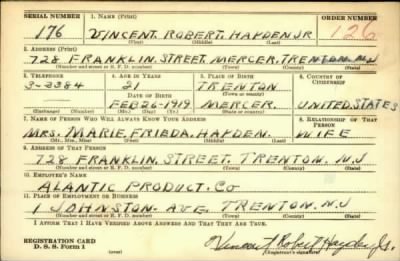 SERIAL NUMBER 1. NAME (Print) ORDER NUMBER
176 VINCENT ROBERT HAYDEN JR 126
(First) (Middle) (Last)
2. ADDRESS (Print)
728 FRANKLIN, STREET, MERCER, TRENTON. N.J
(Number and street or R. F. D. number) (Town) (County) (State)
3. TELEPHONE 4. AGE IN YEARS 5. PLACE OF BIRTH 6. COUNTRY OF CITIZENSHIP
3-2384 21 TRENTON
DATE OF BIRTH (Town or county)
FEB 26-1919 MERCER. UNITED.STATES
(Exchange) (Number) (Mo.) (Day) (Yr.) (State or country)
7. NAME OF PERSON WHO WILL ALWAYS KNOW YOUR ADDRESS 8. RELATIONSHIP OF THAT PERSON
MRS. MARIE, FRIEDA, HAYDEN. WIFE
(Mr., Mrs., Miss) (First) (Middle) (Last)
9. ADDRESS OF THAT PERSON
728 FRANKLIN, STREET, TRENTON. N.J
(Number and street or R. F. D. number) (Town) (County) (State)
10. EMPLOYER'S NAME
ALANTIC PRODUCT. CO
11. PLACE OF EMPLOYMENT OR BUSINESS
1 JOHNSTON- AVE, TRENTON. N.J
(Number and street or R. F. D. number) (Town) (County) (State)
I AFFIRM THAT I HAVE VERIFIED ABOVE ANSWERS AND THAT THEY ARE TRUE.
REGISTRATION CARD
D. S. S. Form 1 (over) Vincent Robert Hayden Jr.
(Registrant's signature)